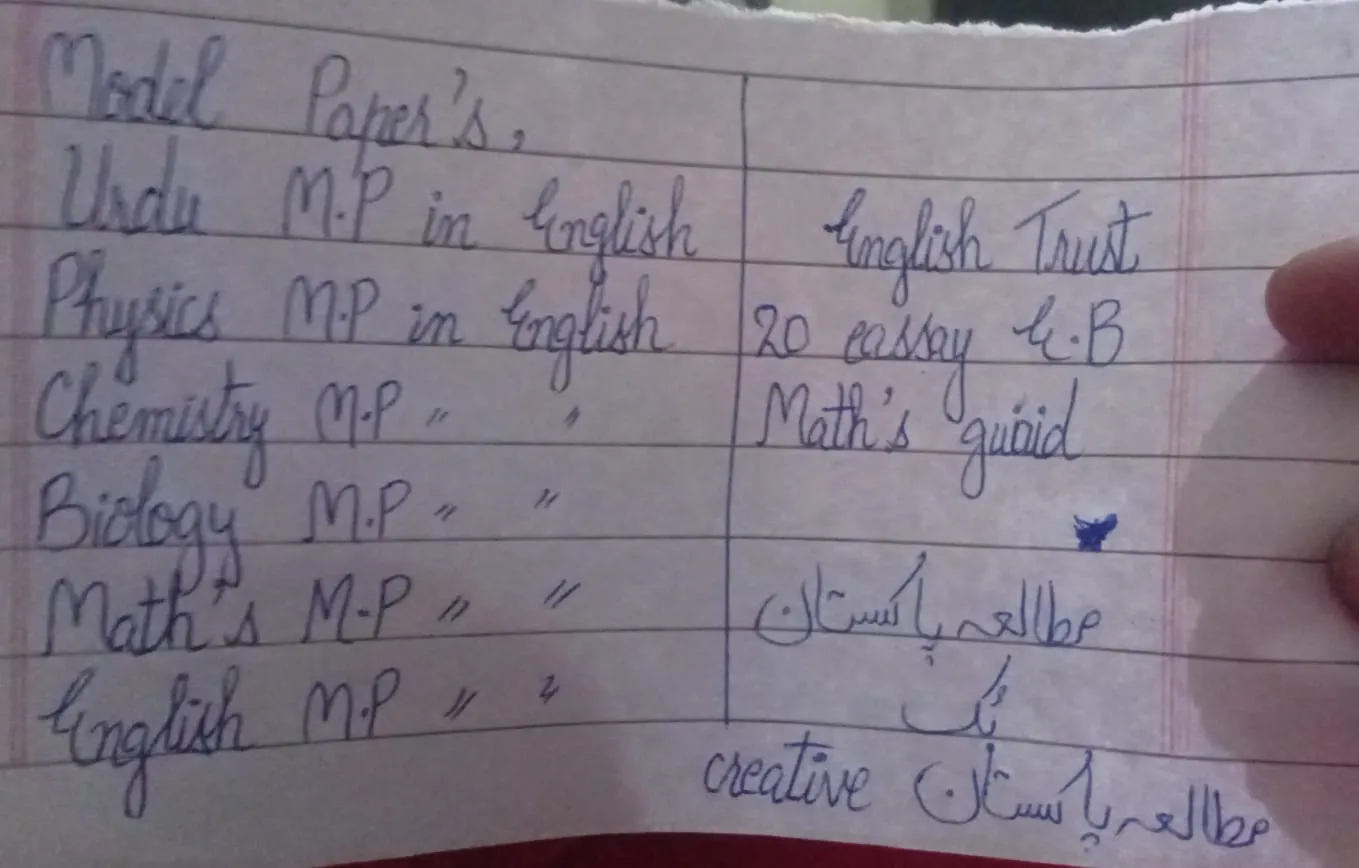 Model Paper's,
Urdu M.P in English
Physics M.P in English
Chemistry M.P " "
Biology M.P " "
Math's M.P " "
English M.P " "
English Trust
20 eassay E.B
Math's guaid
مطالعہ پاکستان
بُک
creative مطالعہ پاکستان